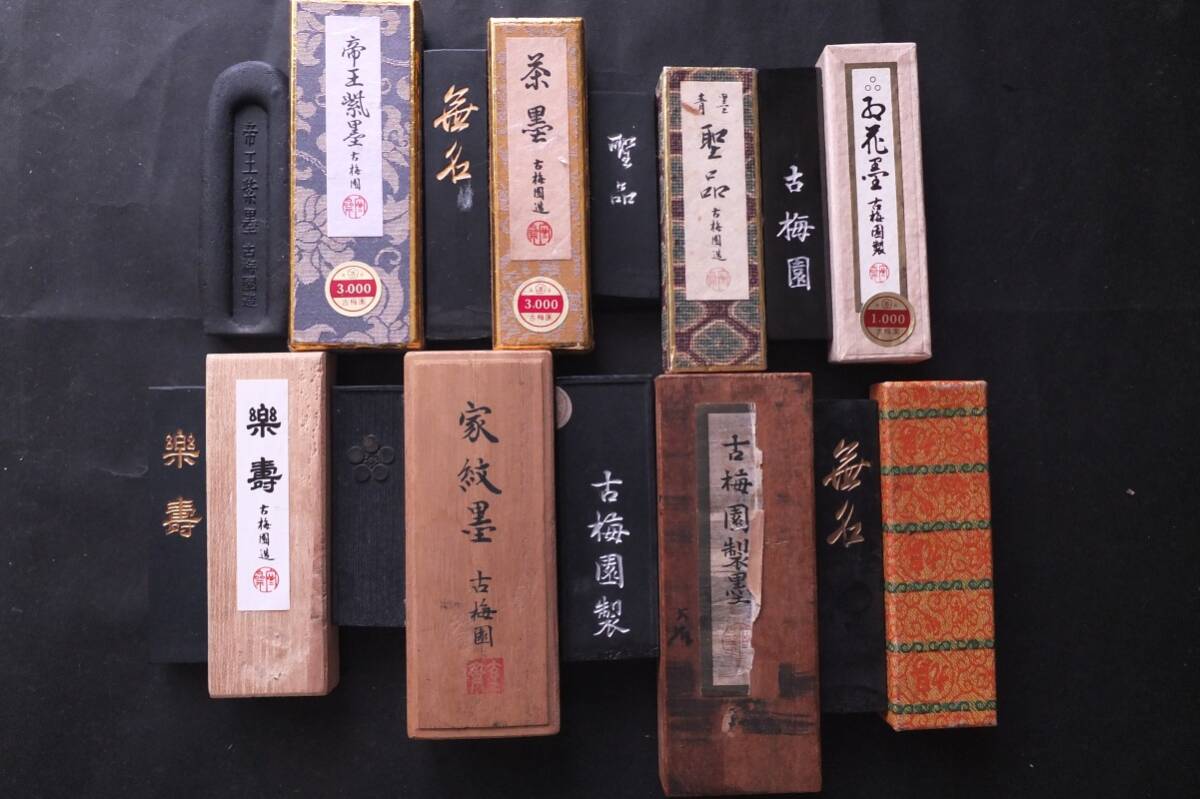 帝王紫墨 古梅園造
帝王紫墨 古梅園
3.000
古梅園
無名
茶墨 古梅園造
3.000
古梅園
聖品
青墨
聖品 古梅園造
古梅園
紅花墨 古梅園製
1.000
古梅園
樂壽
樂壽 古梅園造
家紋墨 古梅園
古梅園製
古梅園製墨
無名